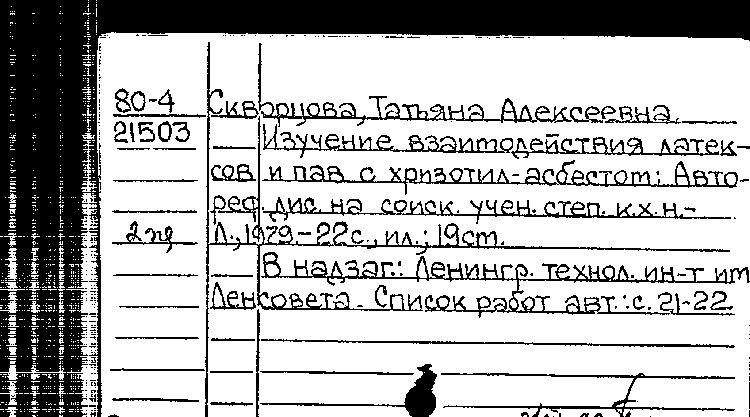 80-4 Скворцова, Татьяна Алексеевна.
21503 Изучение взаимодействия латек-
сов и пав с хризотил-асбестом: Авто-
реф. дис. на соиск. учен. степ. к.х.н.-
2 Л., 1979.-22с., ил.; 19см.
В надзаг.: Ленингр. технол. ин-т им
Ленсовета. Список работ авт.: с. 21-22.